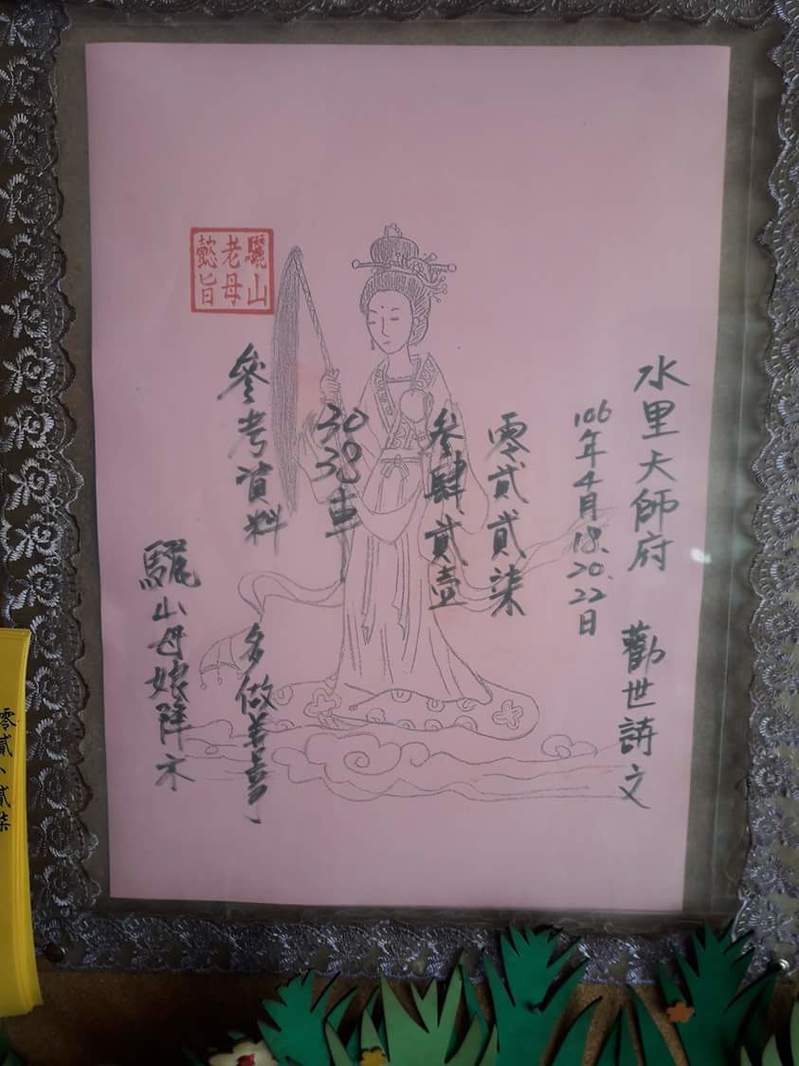 水里大師府 勸世詩文
106年4月18.20.22日
零貳貳柒
參肆貳壹
30 39 車
參考資料 多做善事
驪山母娘降示
驪山
老母
懿旨
零貳、貳柒